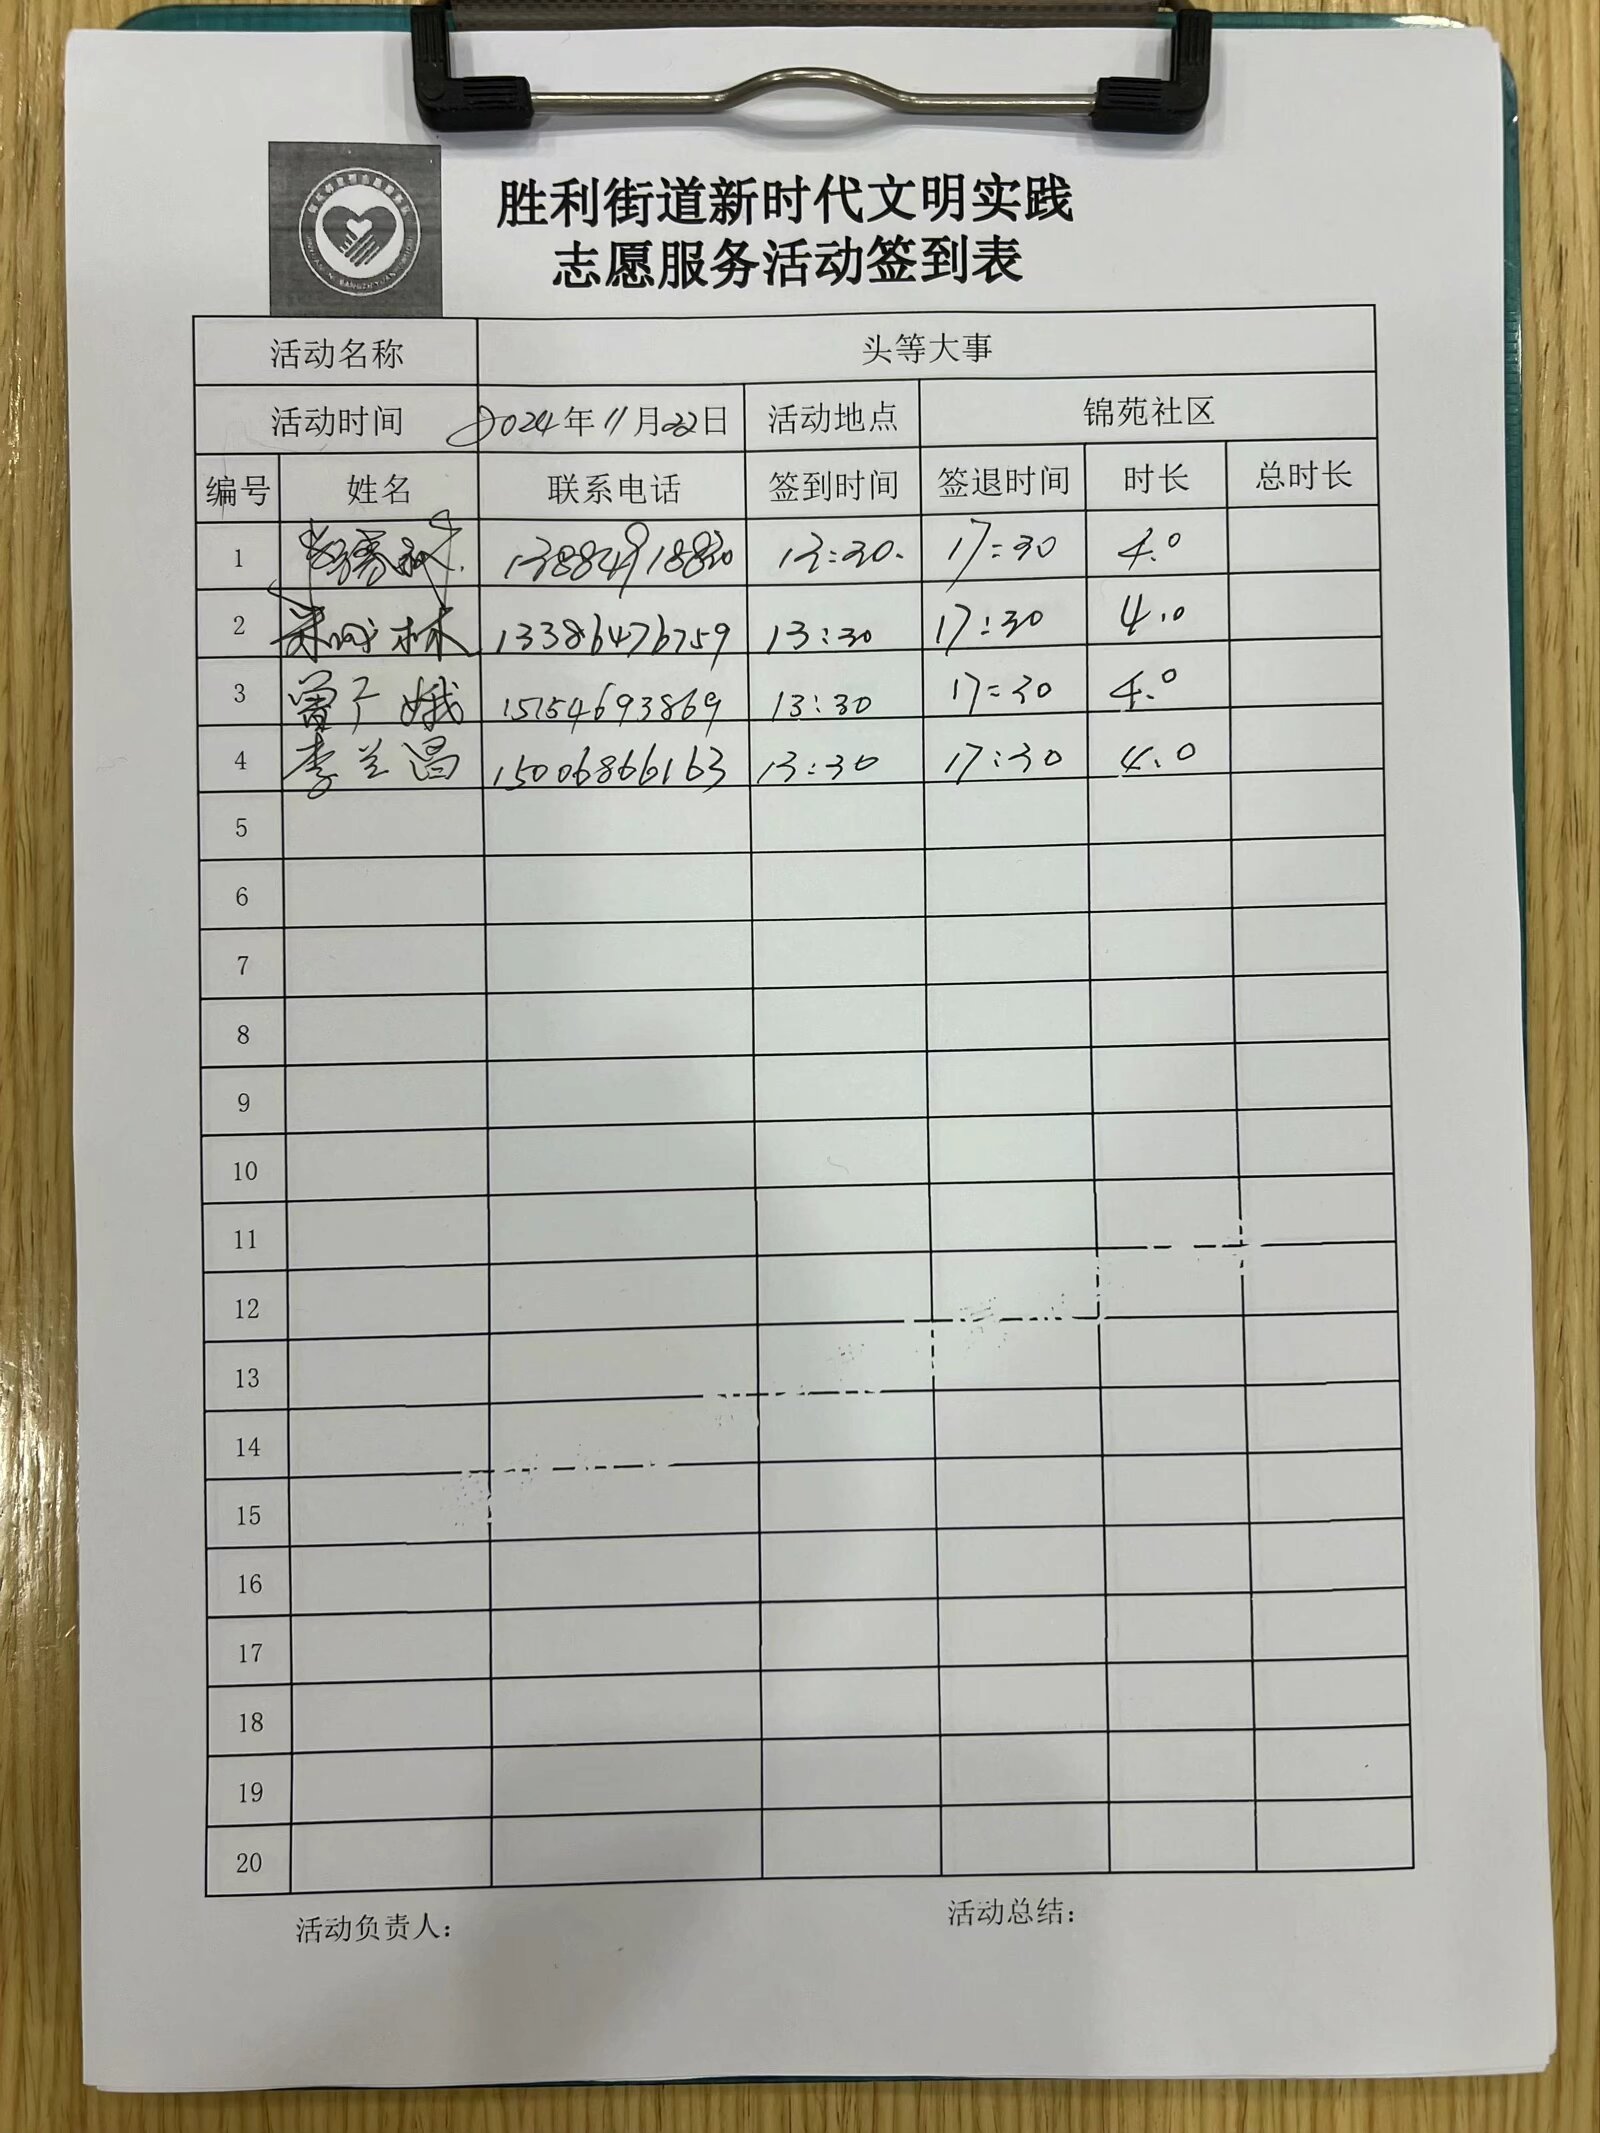 胜利街道新时代文明实践
志愿服务活动签到表
活动名称 头等大事
活动时间 2024年11月22日 活动地点 锦苑社区
编号 姓名 联系电话 签到时间 签退时间 时长 总时长
1 13:30. 17:30 4.0
2 林 13386476759 13:30 17:30 4.0
3 曾广娥 15154693869 13:30 17:30 4.0
4 李兰昌 15006866163 13:30 17:30 4.0
5
6
7
8
9
10
11
12
13
14
15
16
17
18
19
20
活动负责人： 活动总结：